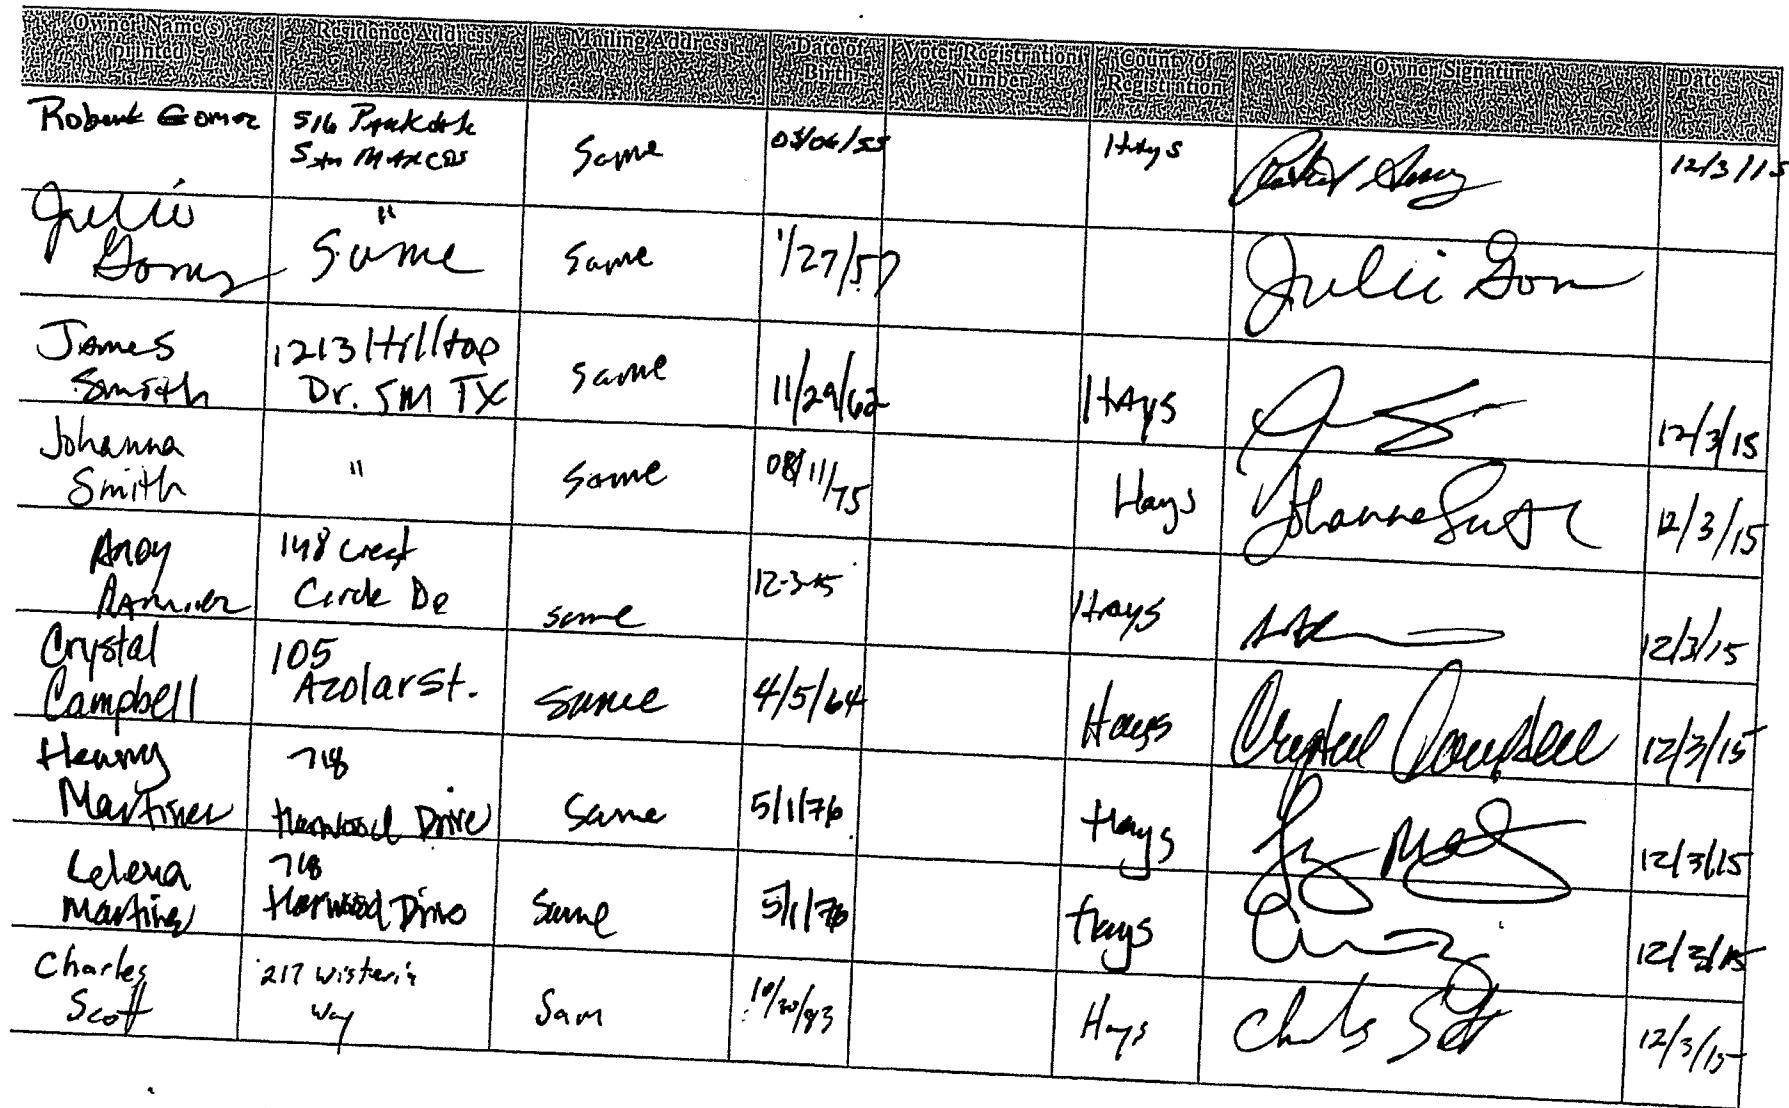 Owner Name(s) printed Residence Address Mailing Address Date of Birth Voter Registration Number County of Registration Owner Signature Date
Robert Gomez 516 Parkdale San Marcos Same Hays 12/3/15
Julie Gomez " Same Same 1/27/57 Julie Gom
James Smith 1213 Hilltop Dr. SM TX Same 11/29/62 Hays 12/3/15
Johanna Smith " Same 08/11/75 Hays Johanna Smith 12/3/15
Andy Ramirez 148 Crest Circle Dr same 12-3-15 Hays 12/3/15
Crystal Campbell 105 Azolar St. Same 4/5/64 Hays Crystal Campbell 12/3/15
Henry Martinez 718 Harwood Drive Same 5/1/76 Hays 12/3/15
Martinez 718 Harwood Drive Same 5/1/76 Hays 12/3/15
Charles Scott 217 Wisteria Way Sam Hays Charles Scott 12/3/15